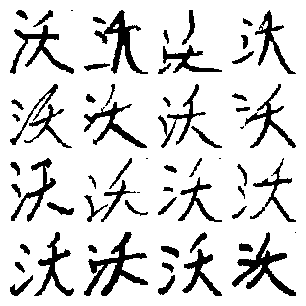 沃沃沃沃
沃沃沃沃
沃沃沃沃
沃沃沃沃